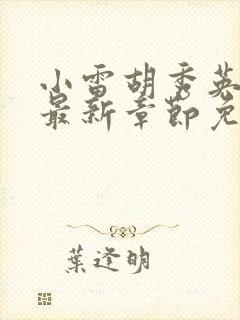 小雷胡秀英
最新章節免
葉逢明